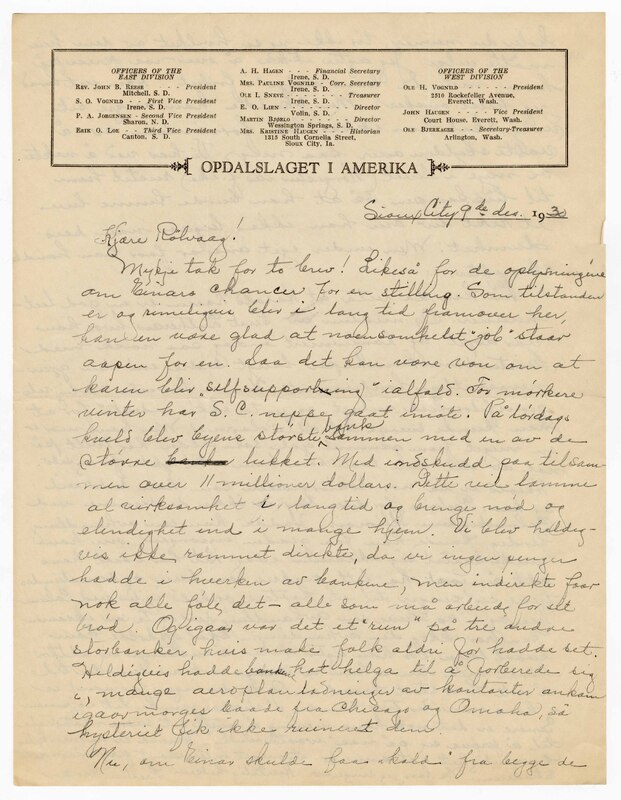 OFFICERS OF THE
EAST DIVISION
REV. JOHN B. REESE - - President
Mitchell, S. D.
S. O. VOGNILD - First Vice President
Irene, S. D.
P. A. JORGENSEN - Second Vice President
Sharon, N. D.
ERIK O. LOE - - Third Vice President
Canton, S. D.
A. H. HAGEN - - - Financial Secretary
Irene, S. D.
MRS. PAULINE VOGNILD - Corr. Secretary
Irene, S. D.
OLE I. SNEVE - - - - Treasurer
Irene, S. D.
E. O. LIEN - - - - - Director
Volin, S. D.
MARTIN BJØRLO - - - - Director
Wessington Springs, S. D.
MRS. KRISTINE HAUGEN - - Historian
1315 South Cornelia Street,
Sioux City, Ia.
OFFICERS OF THE
WEST DIVISION
OLE H. VOGNILD - - - - President
2510 Rockefeller Avenue,
Everett, Wash.
JOHN HAUGEN - - - Vice President
Court House, Everett, Wash.
OLE BJERKAGER - Secretary-Treasurer
Arlington, Wash.
OPDALSLAGET I AMERIKA
Sioux City 9de des. 1930
Kjære Rölvaag!
Mykje tak for to brev! Likeså for de oplysningene
om Einars chancer for en stilling. Som tilstanden
er og rimeligvis blir i lang tid framover her,
kan en være glad at noensomhelst "job" staar
aapen for en. Saa det kan være von om at
karen blir "selfsupporting" ialfald. For mörkere
vinter har S. C. neppe gaat imöte. På lördags
kveld blev byens största bank sammen med en av de
större lukket. Med indskudd paa tilsam-
men over 11 millioner dollars. Dette vil lamme
al virksomhet i langtid og bringe nöd og
elendighet ind i mange hjem. Vi blev heldig-
vis ikke rammet direkte, da vi ingen penger
hadde i hverken av bankene, men indirekte faar
nok alle föle det - alle som må arbeide for sit
bröd. Og igaar var det et "run" på tre andre
storbanker, hvis make folk aldri för hadde set.
Heldigvis hadde bankene hat helga til å forberede sig
i, mange aeroplanladninger av kontanter ankom
igaarmorges baade fra Chicago og Omaha, så
hysteriet fik ikke ruineret dem.
Nu, om Einar skulde faa "kald" fra begge de